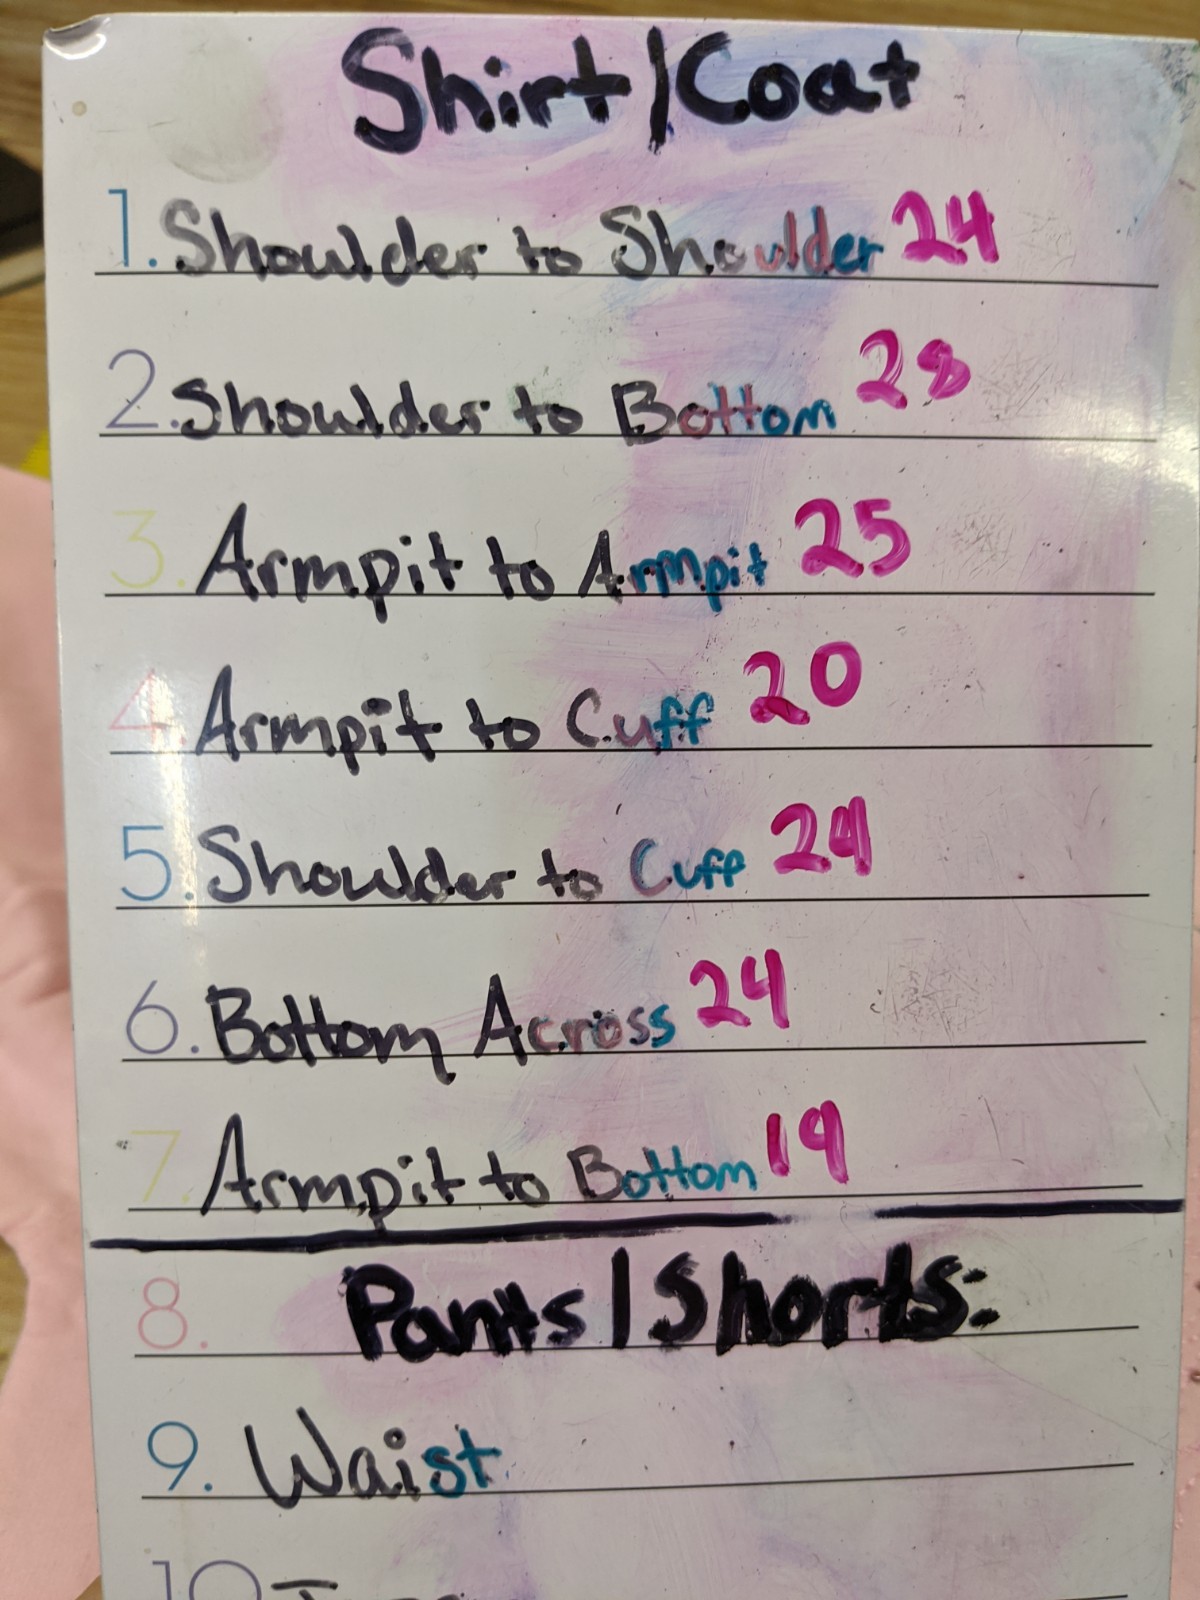 Shirt/Coat
1. Shoulder to Shoulder 24
2. Shoulder to Bottom 28
3. Armpit to Armpit 25
4. Armpit to Cuff 20
5. Shoulder to Cuff 24
6. Bottom Across 24
7. Armpit to Bottom 19
8. Pants/Shorts:
9. Waist
10